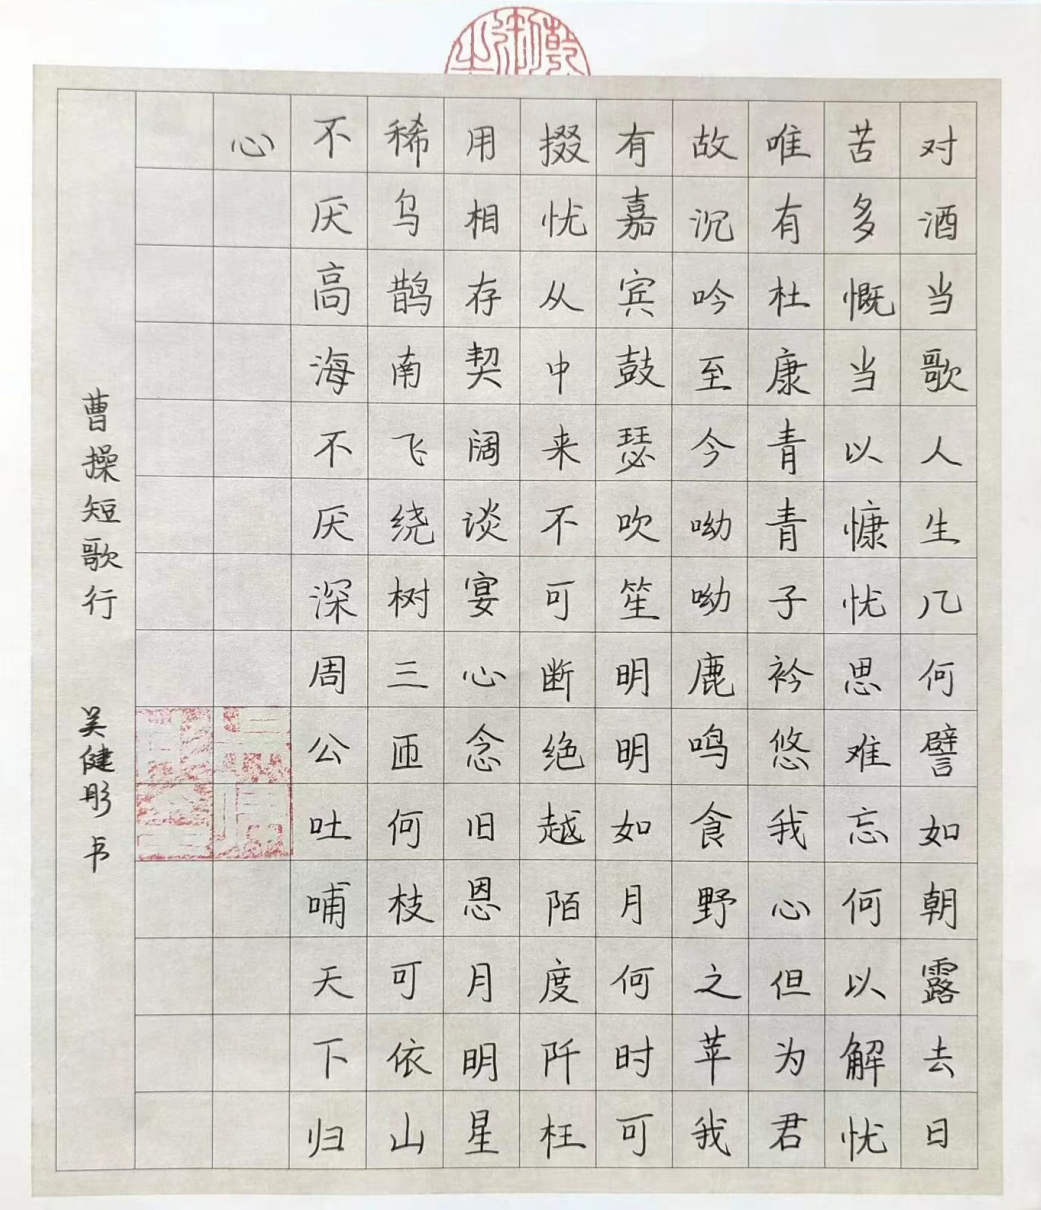 对酒当歌人生几何譬如朝露去日
苦多慨当以慷忧思难忘何以解忧
唯有杜康青青子衿悠我心但为君
故沉吟至今呦呦鹿鸣食野之苹我
有嘉宾鼓瑟吹笙明明如月何时可
掇忧从中来不可断绝越陌度阡枉
用相存契阔谈宴心念旧恩月明星
稀乌鹊南飞绕树三匝何枝可依山
不厌高海不厌深周公吐哺天下归
心
曹操短歌行 吴健彤书